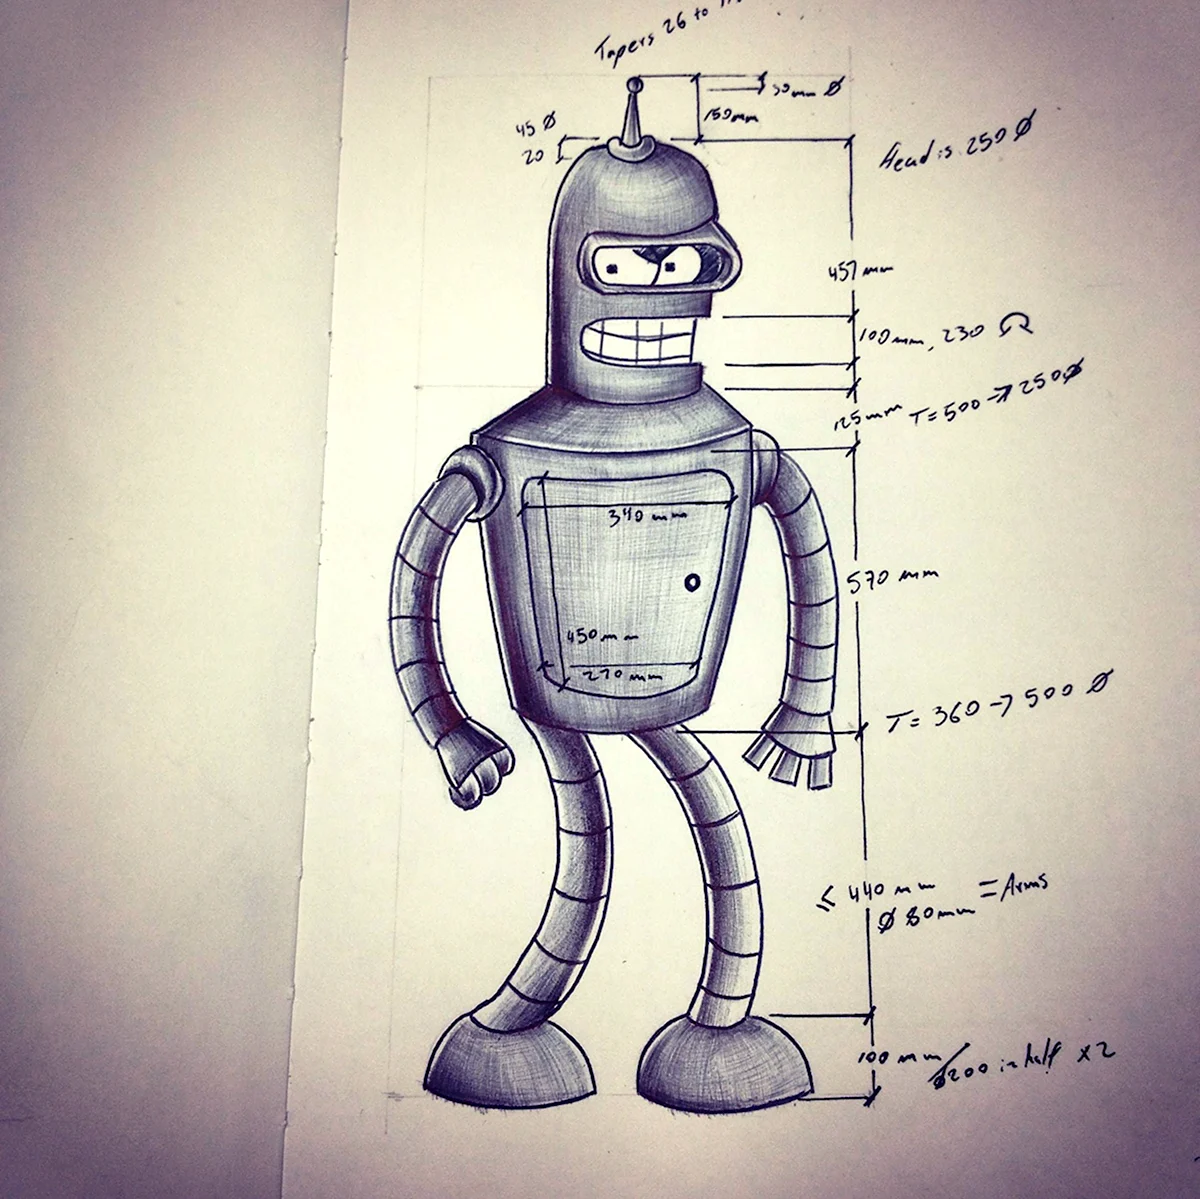 Tapers 26 to
30mm Ø
150mm
45 Ø
20
Head is 250 Ø
457 mm
100mm, 230
125mm T=500→250Ø
340 mm
570 mm
450mm
270 mm
T=360→500 Ø
≤ 440 mm
Ø 80mm = Arms
100 mm
Ø200 in half x2